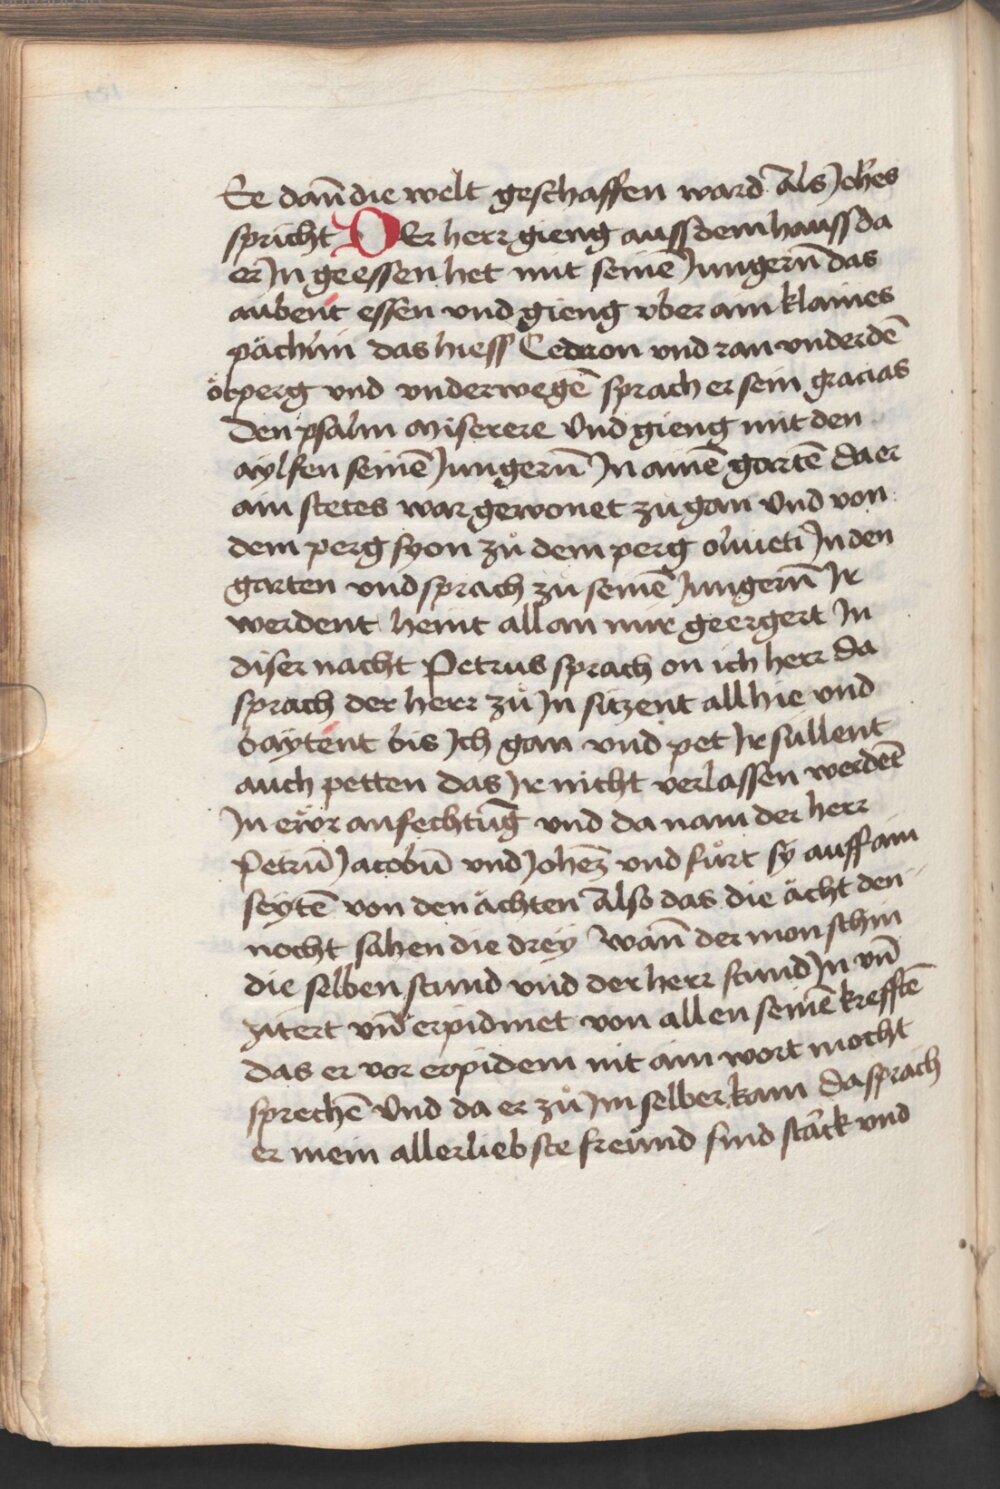 Ee dañ die welt geschaffen ward Als Joh̃es
spricht DEr herr gieng auss dem hauss da
er Jn geessen het mit seinē Jungerñ das
aubent essen vnd gieng vber ain klaines
pächlin das hiess Cedron vnd ran vnder dē
ölperg vnd vnderwegē sprach er sein gracias
Den psalm Miserere Vnd gieng mit den
aylfen seinē Jungerñ Jn ainē gartē da er
ain stetes war gewonet zu gan Vnd von
dem perg syon zů dem perg oliueti Jn den
garten vnd sprach zu seinē Jungerñ Jr
werdent heint all an mir geergert Jn
diser nacht Petrus sprach on ich herr da
sprach der herr zů Jn sitzent all hie vnd
baytent bis Jch gan vnd pet Jr sullent
auch petten das Jr nicht verlassen werdēt
Jn ewr anfechtung̃ vnd da nam der herr
Petrū Jacobū vnd Joheñ vnd fůrt sy auff ain
seytē von den ächten Also das die ächt den
nocht sahen die drey Wañ der mon schin
die selben stund vnd der herr stund Jn vñ
zitert vñ erpidmet von allen seinē krefftē
das er vor erpidem nit ain wort mocht
sprechē Vnd da er zů Jm selber kam da sprach
er mein allerliebste freund sind starck vnd